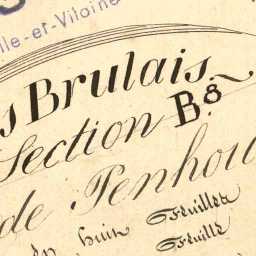 lle-et-Vilaine
s Brulais
Section B⁸
de Penhou
en huit Feuilles
Feuille